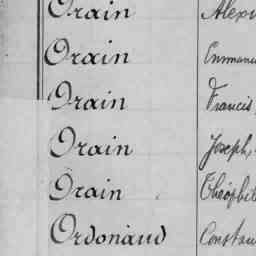 Orain Alexi
Orain Emmanu
Orain Francis
Orain Joseph,
Orain Théophil
Ordonaud Constan